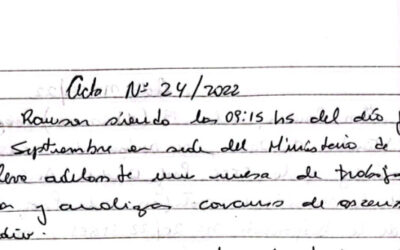 Acta Nº 24/2022
Rawson siendo las 09:15 hs del día
Septiembre en sede del Ministerio de
adelante una mesa de trabajo
y analizar concurso de ascenso